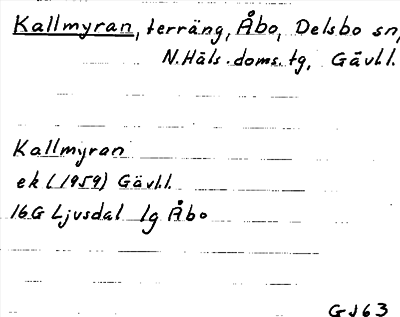 Kallmyran, terräng, Åbo, Delsbo sn,
N. Häls. doms. tg, Gävl.l.
Kallmyran
ek (1959) Gävl.l.
16G Ljusdal 1g Åbo
GJ63